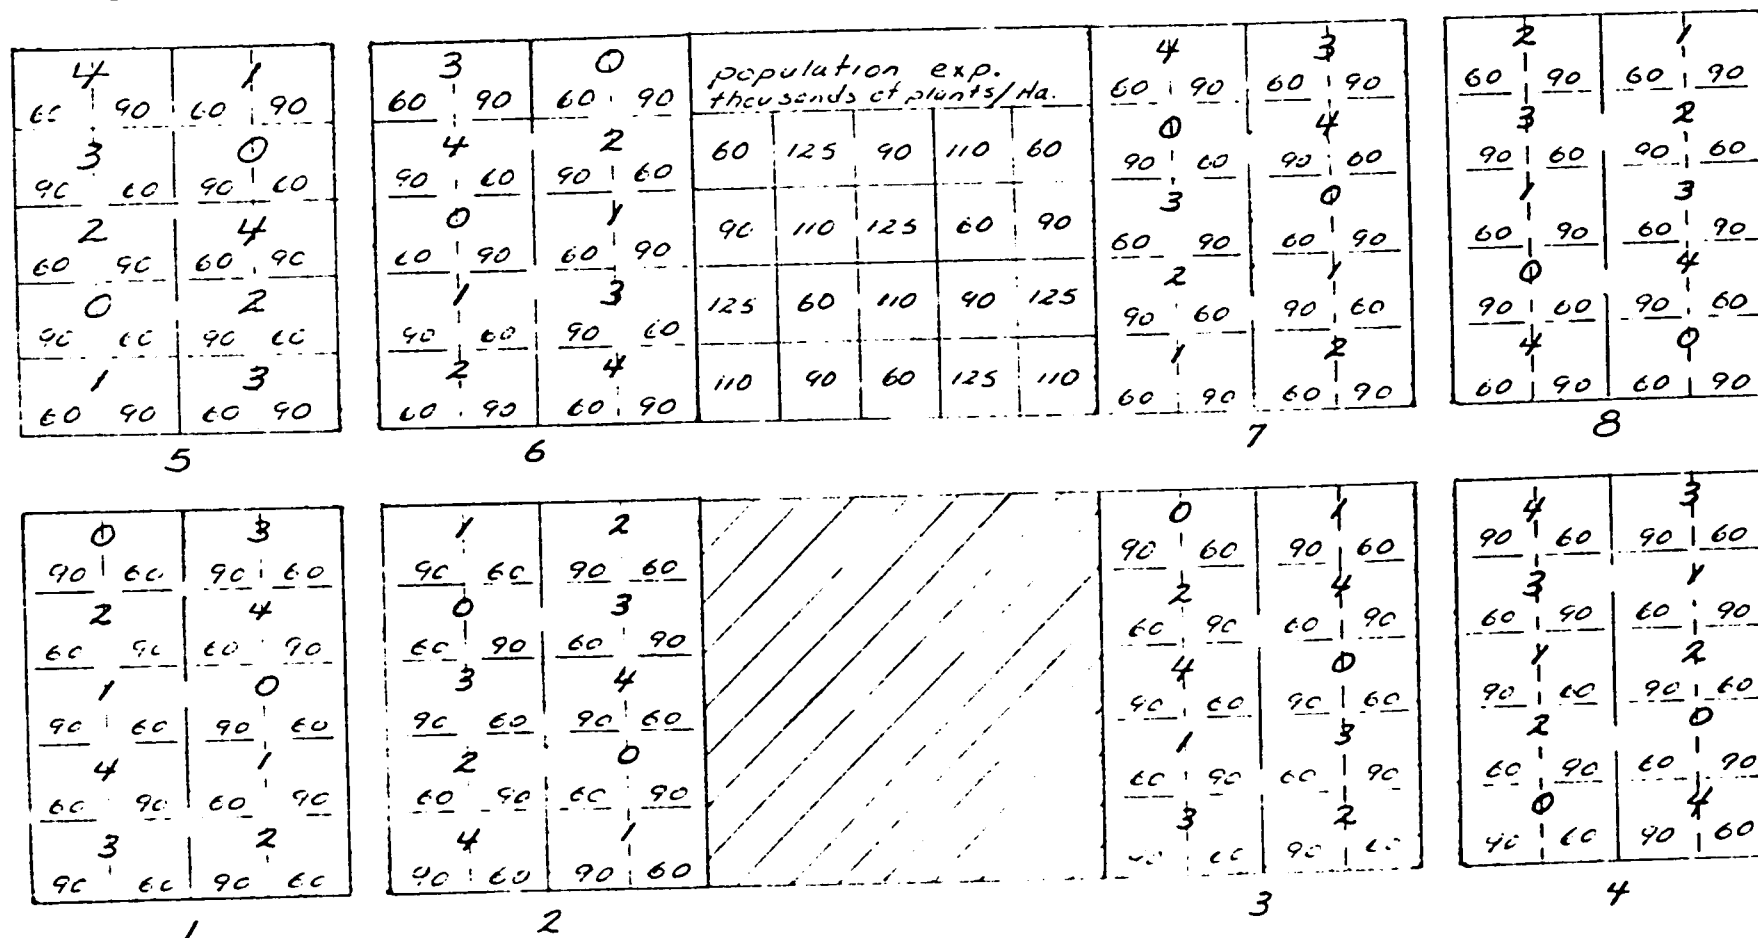 4 1
60 90 60 90
3 0
90 60 90 60
2 4
60 90 60 90
0 2
90 60 90 60
1 3
60 90 60 90
5
3 0
60 90 60 90
4 2
90 60 90 60
0 1
60 90 60 90
1 3
90 60 90 60
2 4
60 90 60 90
6
population exp.
thousands of plants/Ha.
60 125 90 110 60
90 110 125 60 90
125 60 110 90 125
110 90 60 125 110
4 3
60 90 60 90
0 4
90 60 90 60
3 0
60 90 60 90
2 1
90 60 90 60
1 2
60 90 60 90
7
2 1
60 90 60 90
3 2
90 60 90 60
1 3
60 90 60 90
0 4
90 60 90 60
4 0
60 90 60 90
8
0 3
90 60 90 60
2 4
60 90 60 90
1 0
90 60 90 60
4 1
60 90 60 90
3 2
90 60 90 60
1
1 2
90 60 90 60
0 3
60 90 60 90
3 4
90 60 90 60
2 0
60 90 60 90
4 1
90 60 90 60
2
0 1
90 60 90 60
2 4
60 90 60 90
4 0
90 60 90 60
1 3
60 90 60 90
3 2
60 90 60
3
4 3
90 60 90 60
3 1
60 90 60 90
1 2
90 60 90 60
2 0
60 90 60 90
0 4
90 60 90 60
4